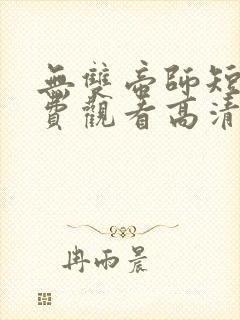 無雙帝師短
費觀看高清
冉雨晨